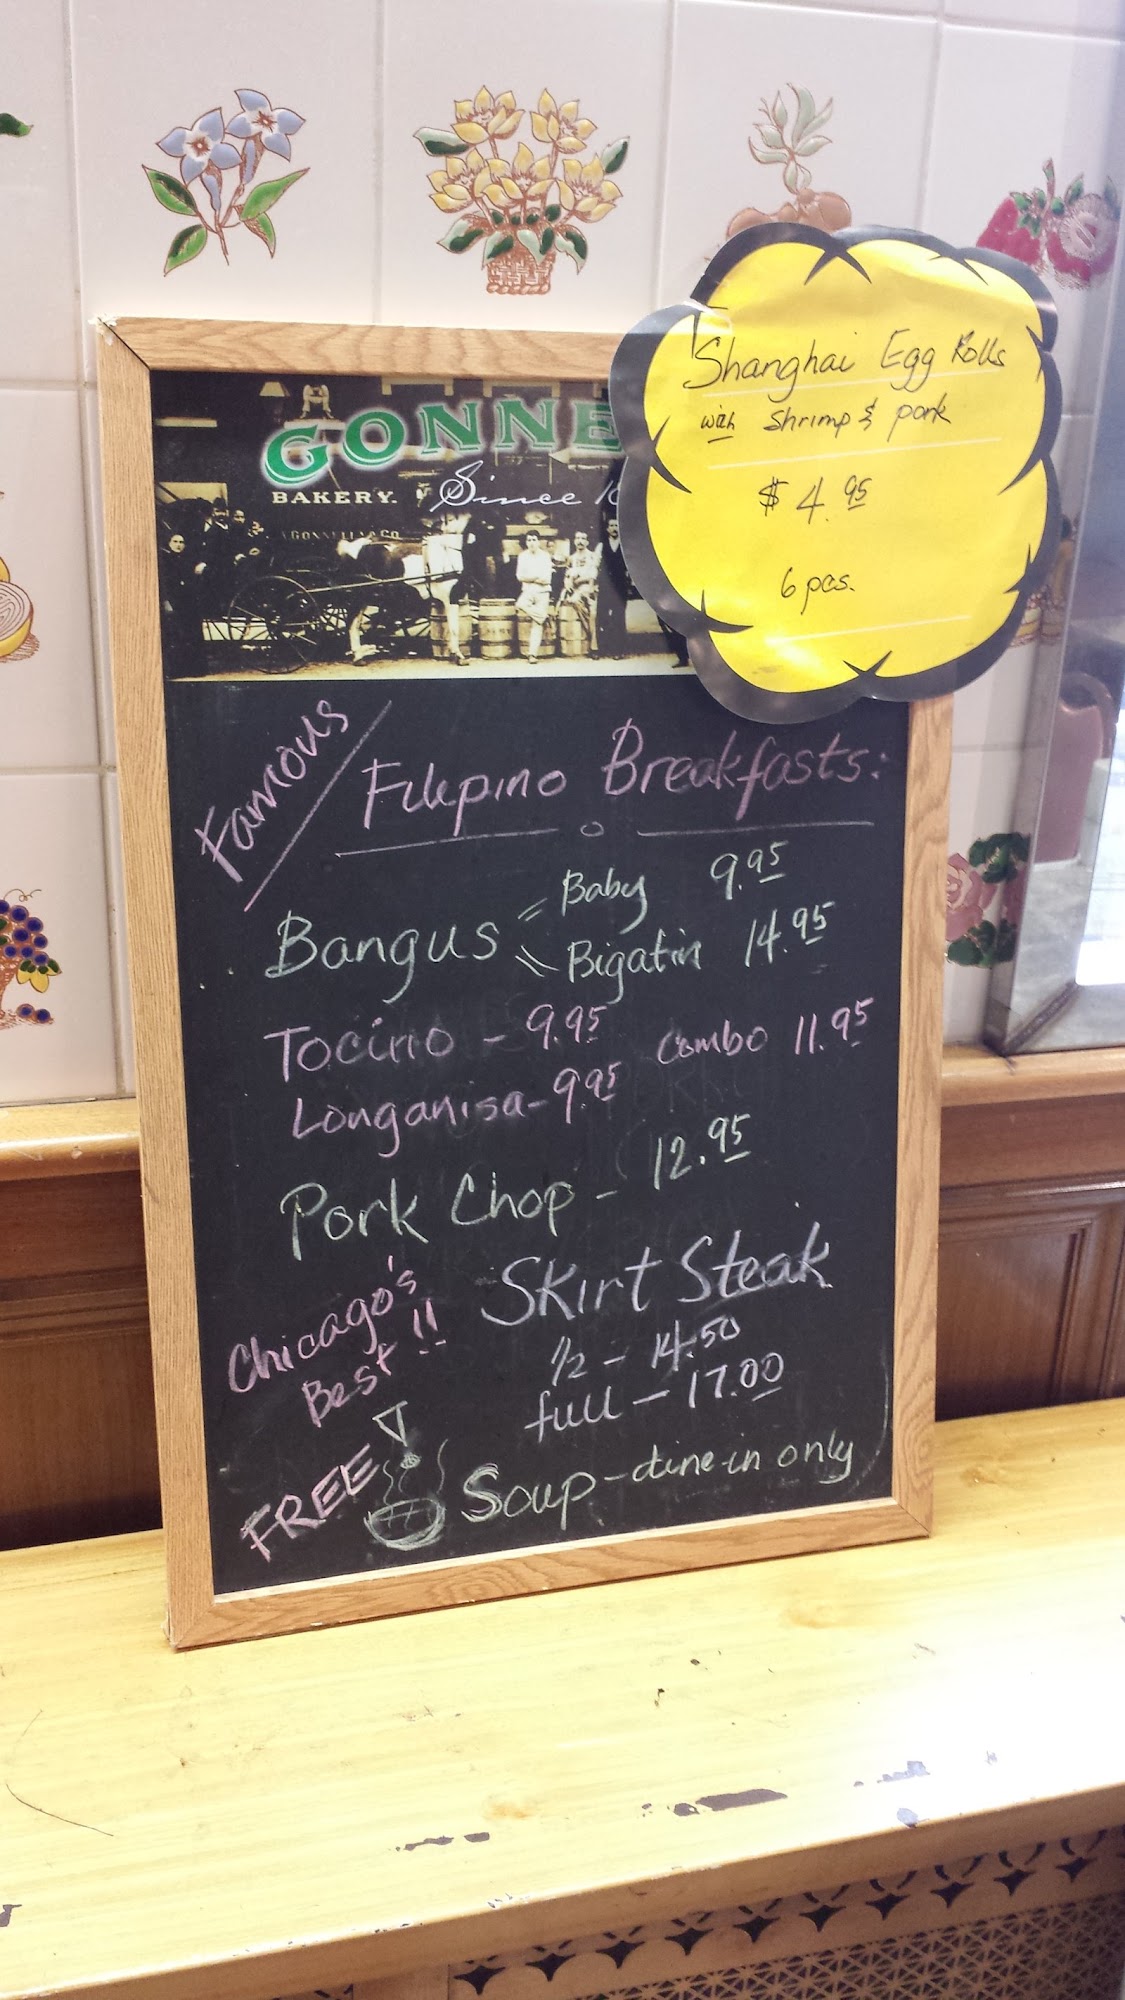 GONNE
BAKERY. Since
GONNELLA & CO.
Shanghai Egg Rolls
with Shrimp & pork
$4.95
6 pcs.
Famous
Filipino Breakfasts:
Bangus = Baby 9.95
Bigatin 14.95
Tocino - 9.95
Combo 11.95
Longanisa - 9.95
Pork Chop - 12.95
Chicago's
Best!!
Skirt Steak
1/2 - 14.50
full - 17.00
FREE! Soup - dine-in only